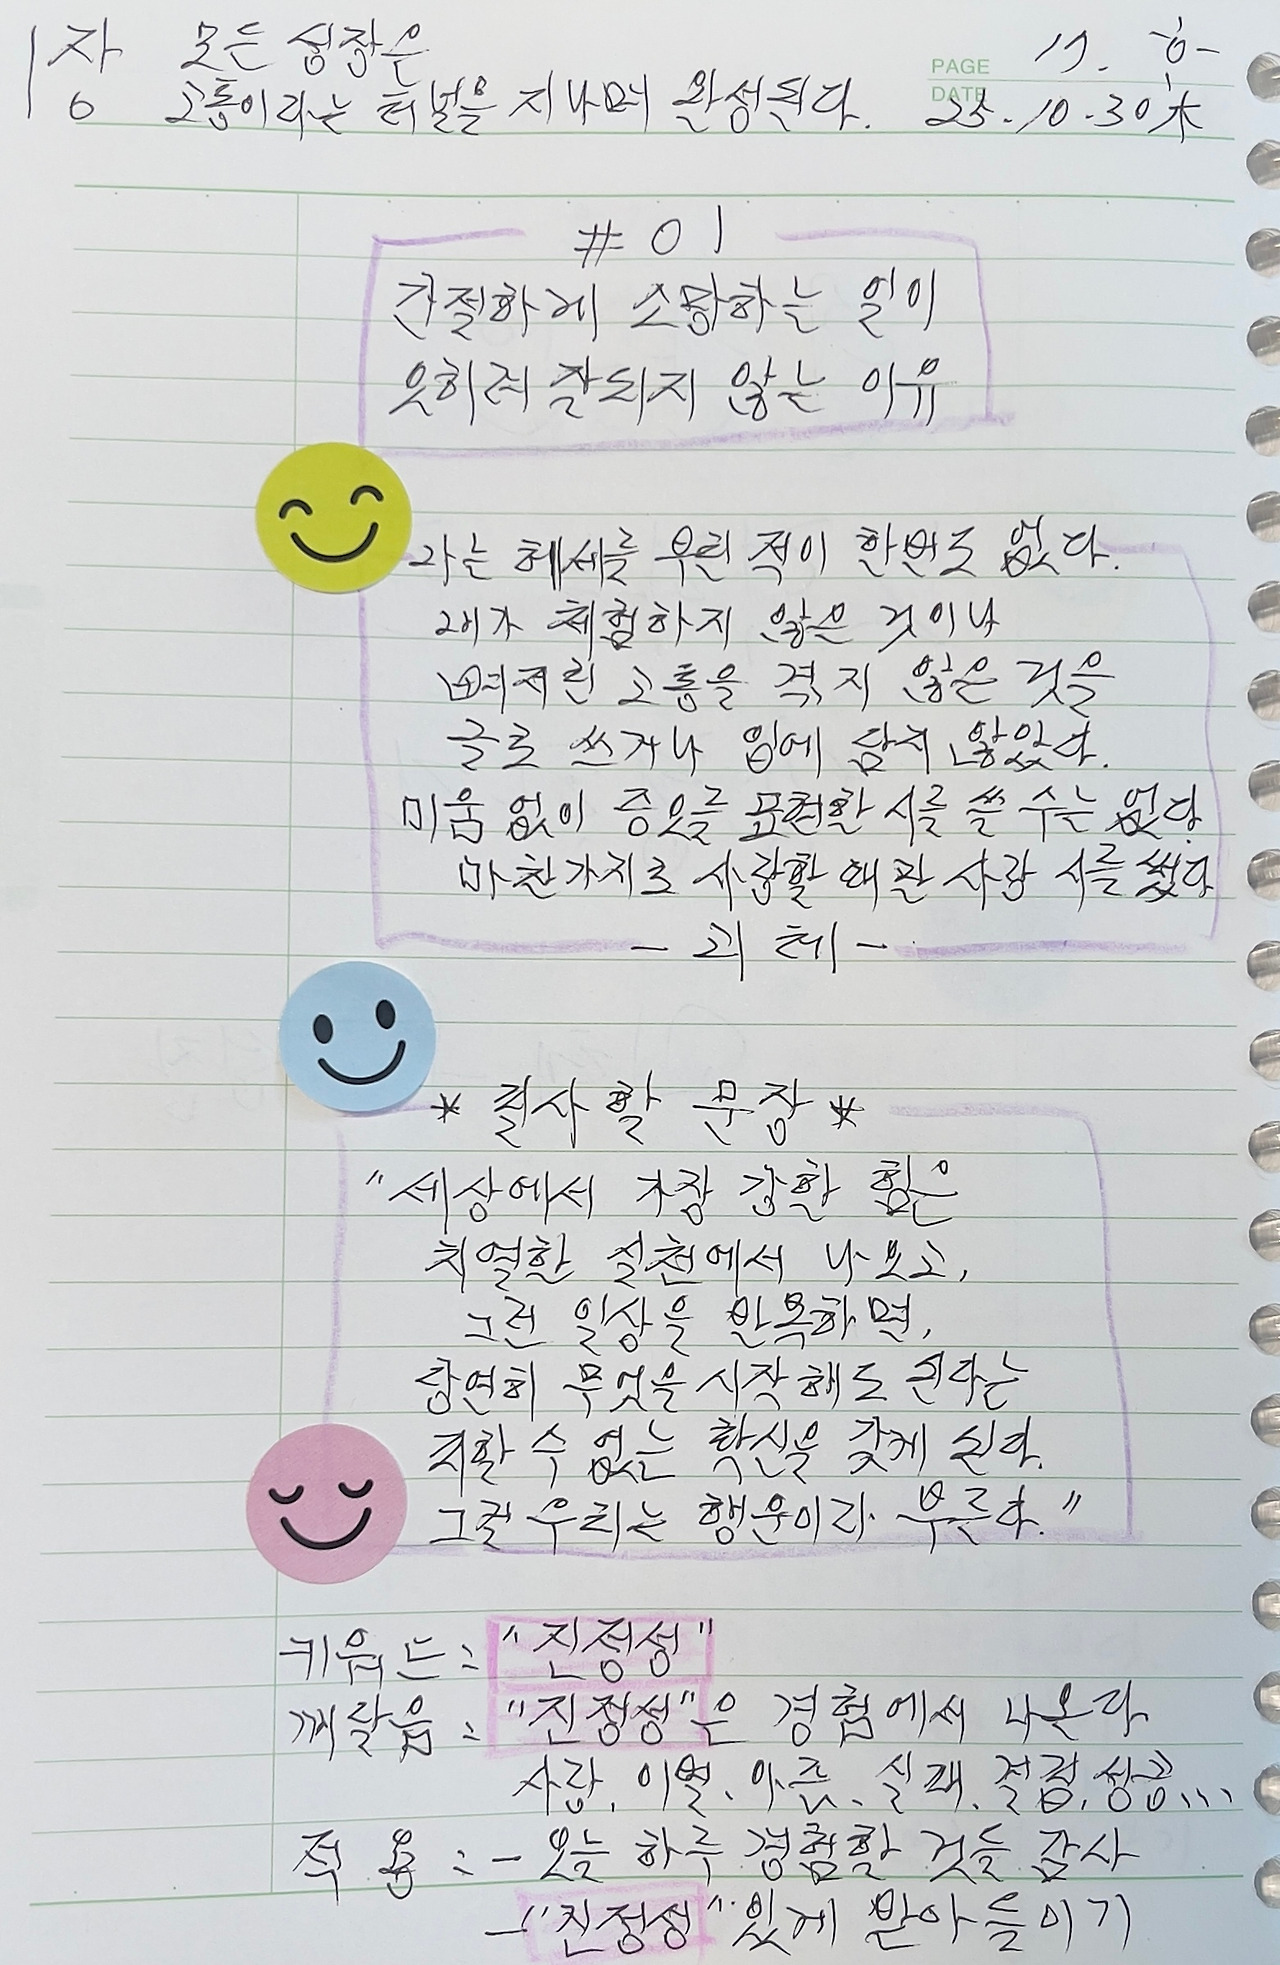 1장 모든 성장은
고통이라는 터널을 지나며 완성된다.
PAGE 17.
DATE 25.10.30 木
#01
간절하게 소망하는 일이
오히려 잘되지 않는 이유
나는 허세를 부린 적이 한번도 없다.
내가 체험하지 않은 것이나
뼈저린 고통을 겪지 않은 것을
글로 쓰거나 입에 담지 않았다.
미움 없이 증오를 표현한 시를 쓸 수는 없다.
마찬가지로 사랑할 때만 사랑 시를 썼다
- 괴테 -
* 필사할 문장 *
"세상에서 가장 강한 힘은
치열한 실천에서 나오고,
그런 일상을 반복하면,
당연히 무엇을 시작해도 된다는
피할 수 없는 확신을 갖게 된다.
그걸 우리는 행운이라 부른다."
키워드 : "진정성"
깨달음 : "진정성"은 경험에서 나온다
사랑, 이별, 아픔, 실패, 절검, 성공...
적용 : - 오늘 하루 경험할 것들 감사
- "진정성" 있게 받아들이기